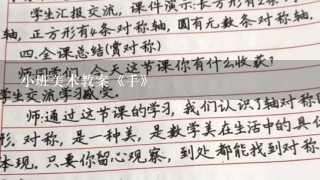 学生汇报交流，课件演示：长方形有2条
轴，正方形有4条对称轴，圆有无数条对称轴.
四.全课总结(赏对称)
师：同学们，今天这节课你有什么收获？
小班美术教案《手》
学生交流学习感
师：通过这节课的学习，我们认识了轴对称图
形.对称，是一种美，是数学美在生活中的具
体现.只要你留心观察，到处都能找到对称